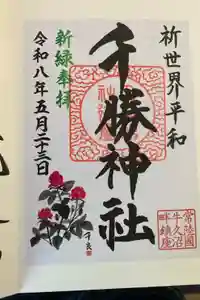 祈世界平和
千勝神社
新緑奉拝
令和八年五月二十三日
常陸國
牛久沼
畔鎮座